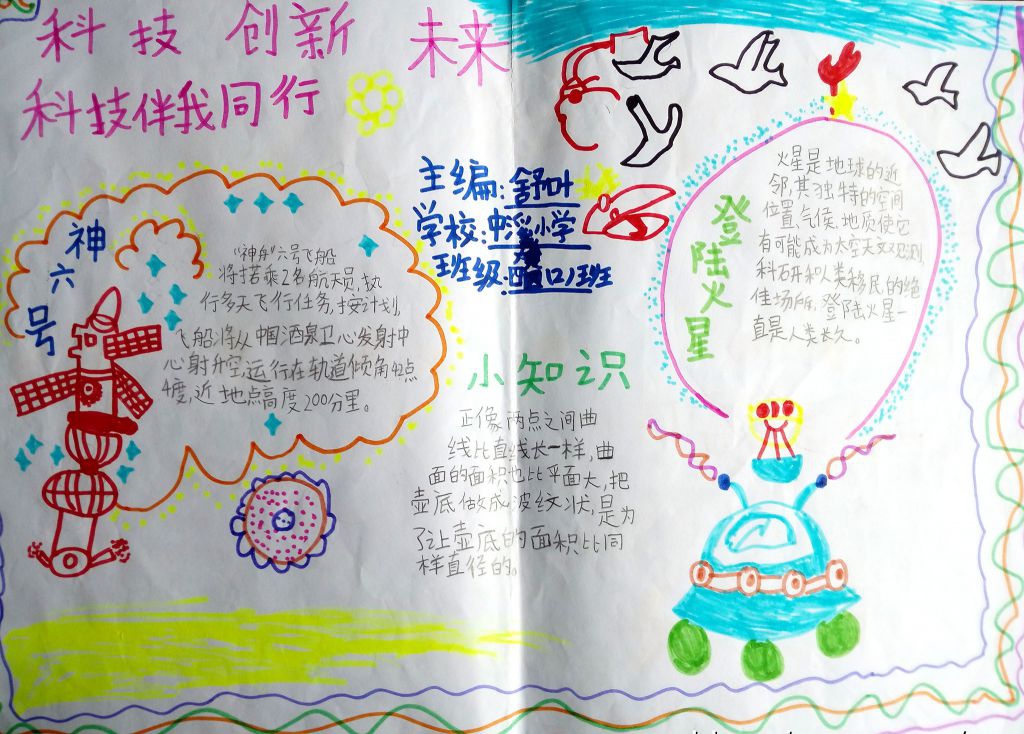 科技 创新 未来
科技伴我同行
主编:舒叶
学校:中心小学
班级:四(1)班
神六号
"神舟"六号飞船
将搭乘2名航天员,执
行多天飞行任务,按计划,
飞船将从中国酒泉卫心发射中
心射升空,运行在轨道倾角42点
4度,近地点高度200分里。
小知识
正像两点之间曲
线比直线长一样,曲
面的面积也比平面大,把
壶底做成波纹状,是为
了让壶底的面积比同
样直径的。
登陆火星
火星是地球的近
邻,其独特的空间
位置,气候、地质使它
有可能成为太空天文观测,
科研和人类移民的绝
佳场所,登陆火星一
直是人类长久。